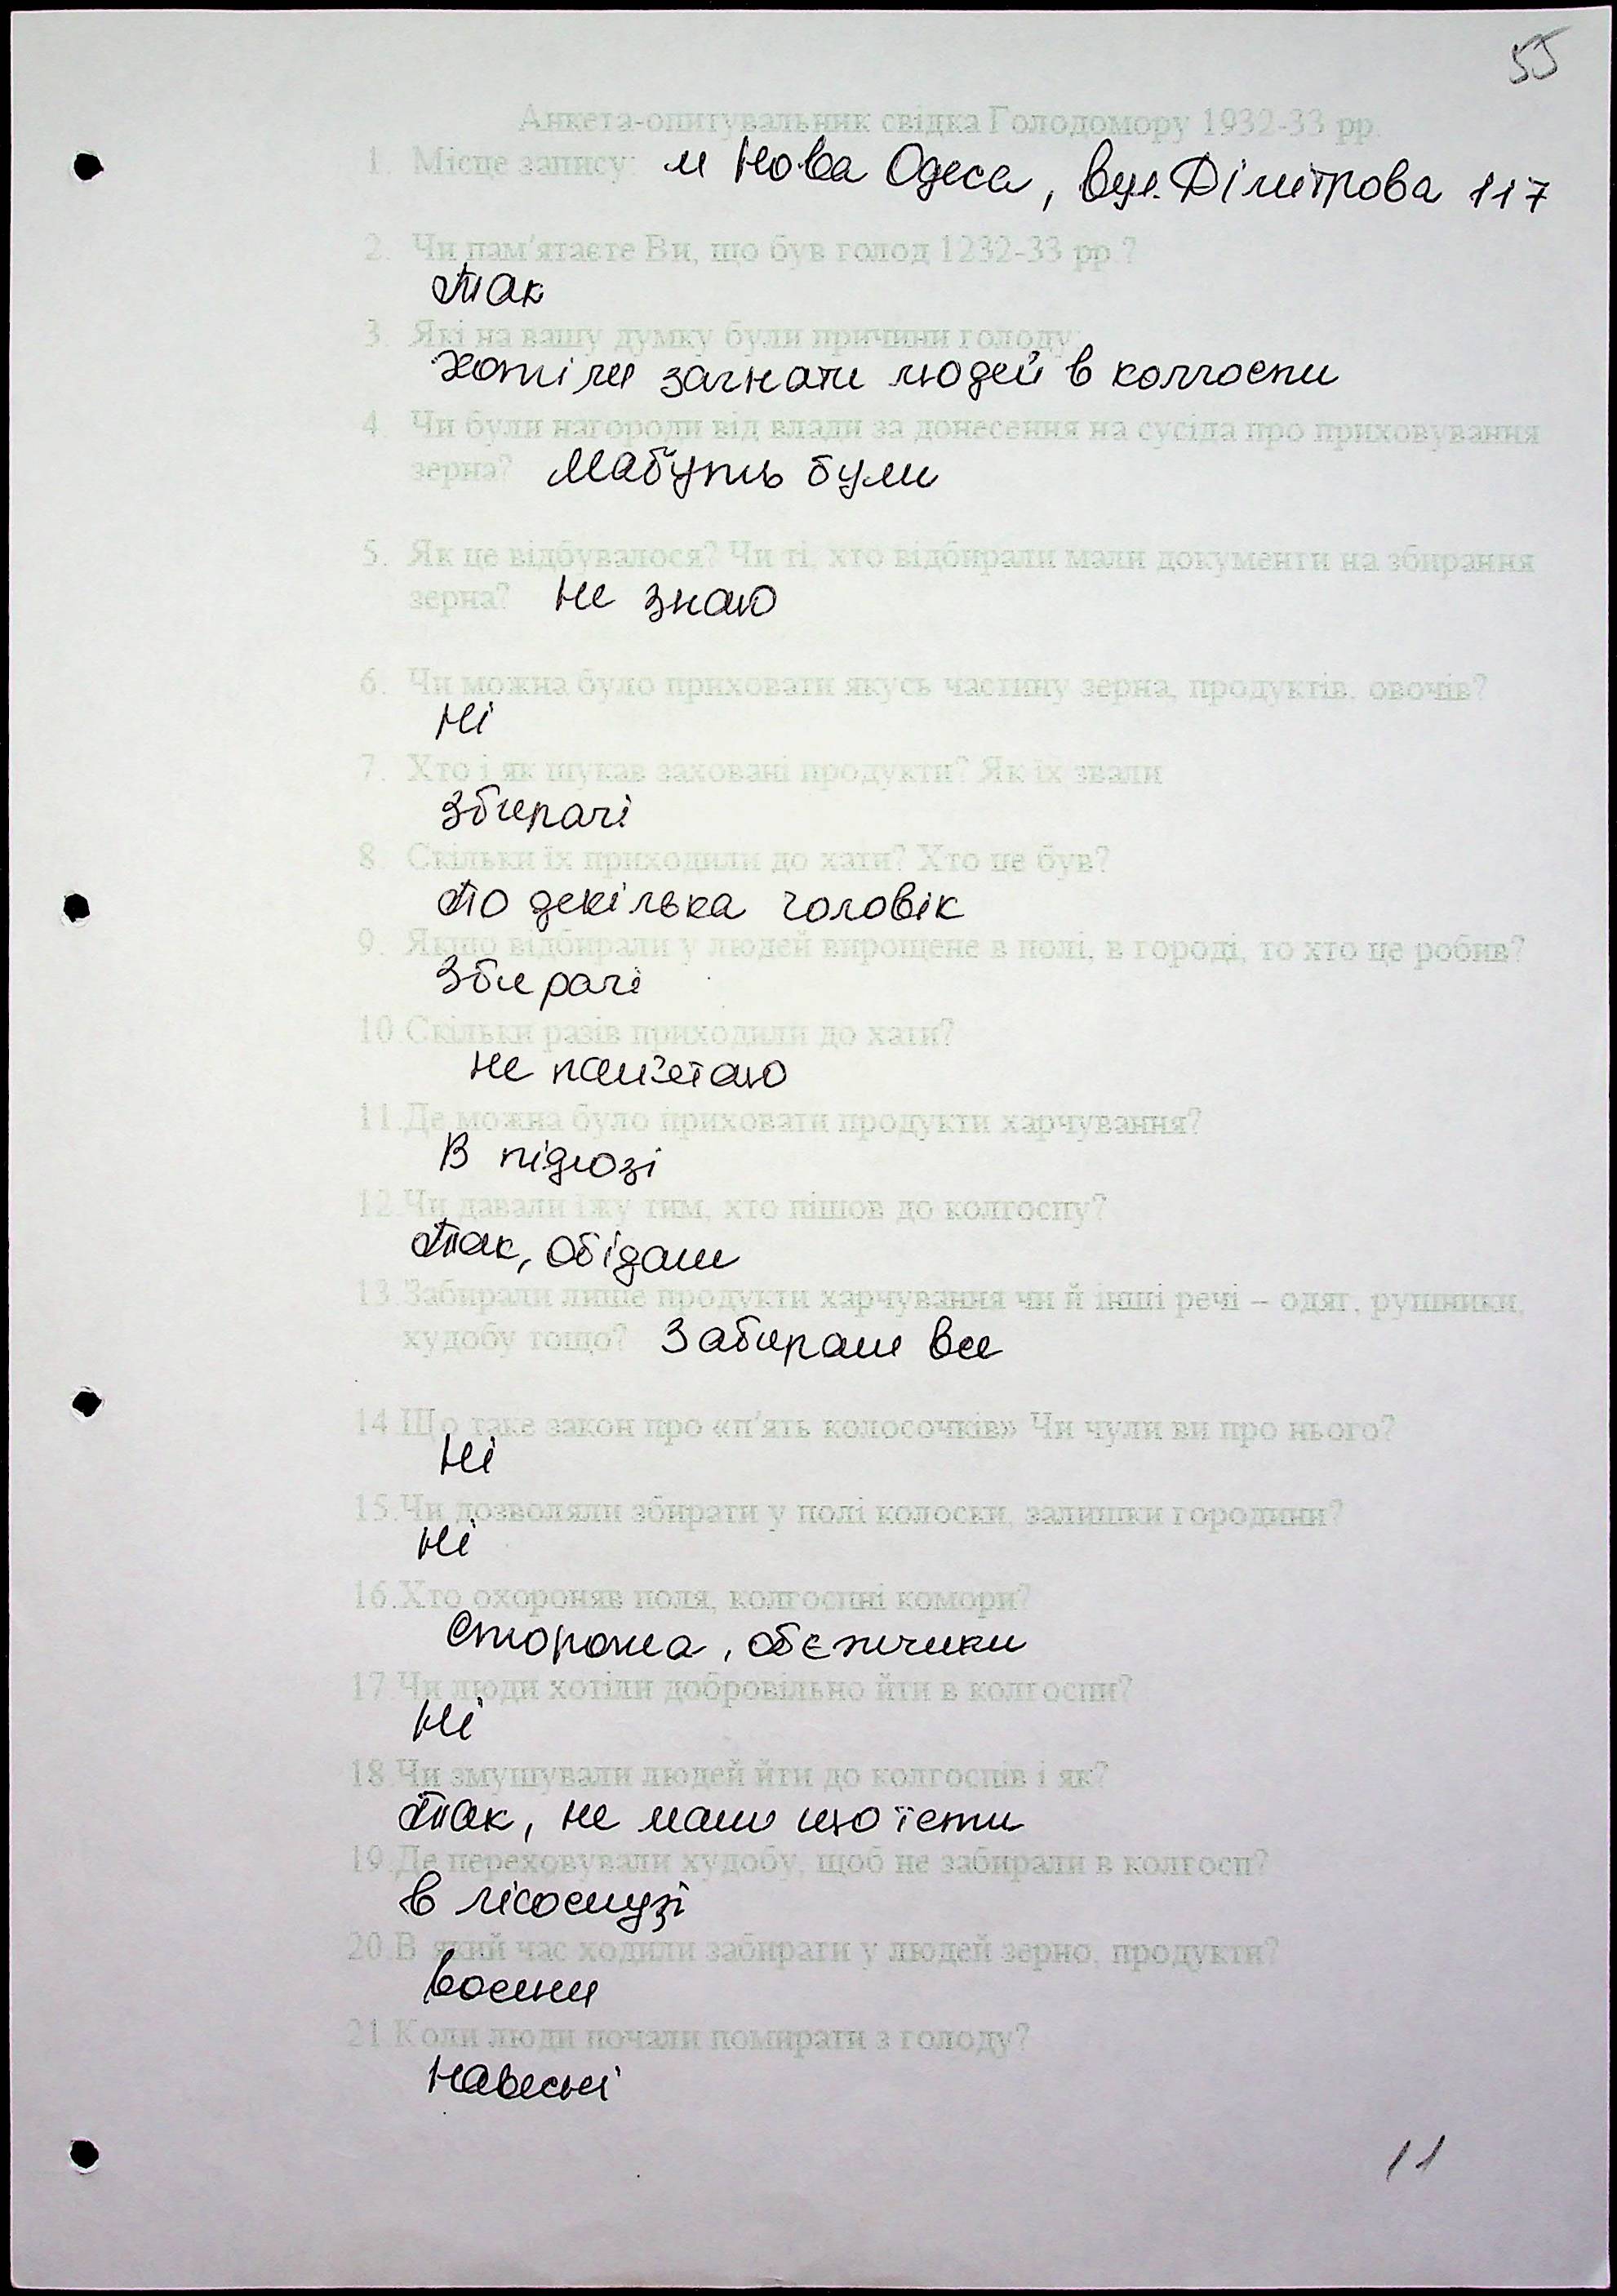 55
Анкета-опитувальник свідка Голодомору 1932-33 рр.
1. Місце запису: м Нова Одеса, вул. Дімітрова 117
2. Чи пам'ятаєте Ви, що був голод 1232-33 рр.?
Так
3. Які на вашу думку були причини голоду:
хотіли загнати людей в колгоспи
4. Чи були нагороди від влади за донесення на сусіда про приховування
зерна? Мабуть були
5. Як це відбувалося? Чи ті, хто відбирали мали документи на збирання
зерна? Не знаю
6. Чи можна було приховати якусь частину зерна, продуктів, овочів?
Ні
7. Хто і як шукав заховані продукти? Як їх звали
Збирачі
8. Скільки їх приходили до хати? Хто це був?
По декілька чоловік
9. Якщо відбирали у людей вирощене в полі, в городі, то хто це робив?
Збирачі
10.Скільки разів приходили до хати?
не пам'ятаю
11.Де можна було приховати продукти харчування?
В підлозі
12.Чи давали їжу тим, хто пішов до колгоспу?
Так, обідали
13.Забирали лише продукти харчування чи й інші речі – одяг, рушники,
худобу тощо? Забирали все
14.Що таке закон про «п'ять колосочків» Чи чули ви про нього?
Ні
15.Чи дозволяли збирати у полі колоски, залишки городини?
Ні
16.Хто охороняв поля, колгоспні комори?
Сторожа, обєзчики
17.Чи люди хотіли добровільно йти в колгоспи?
Ні
18.Чи змушували людей йти до колгоспів і як?
Так, не мали що їсти
19.Де переховували худобу, щоб не забирали в колгосп?
в лісосмузі
20.В який час ходили забирати у людей зерно, продукти?
восени
21.Коли люди почали помирати з голоду?
навесні
11